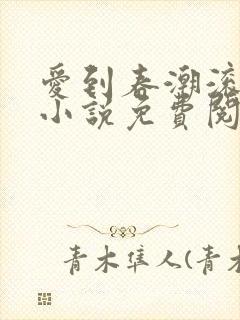 愛到春潮滾
小說免費閱
青木隼人(青木